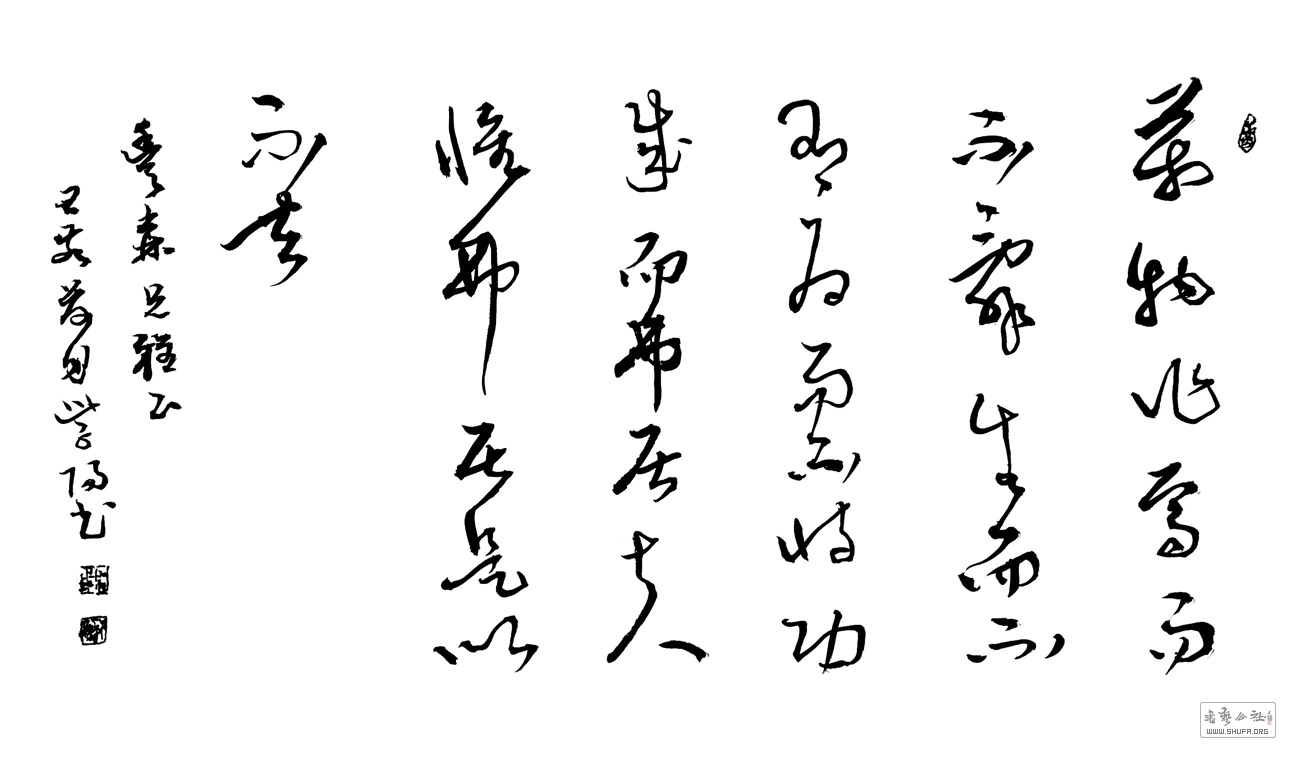 萬物作焉而
不辭生而不
有為而不恃功
成而弗居夫
惟弗居是以
不去
壽森兄雅正
學陽書
書藝公社
WWW.SHUFA.ORG